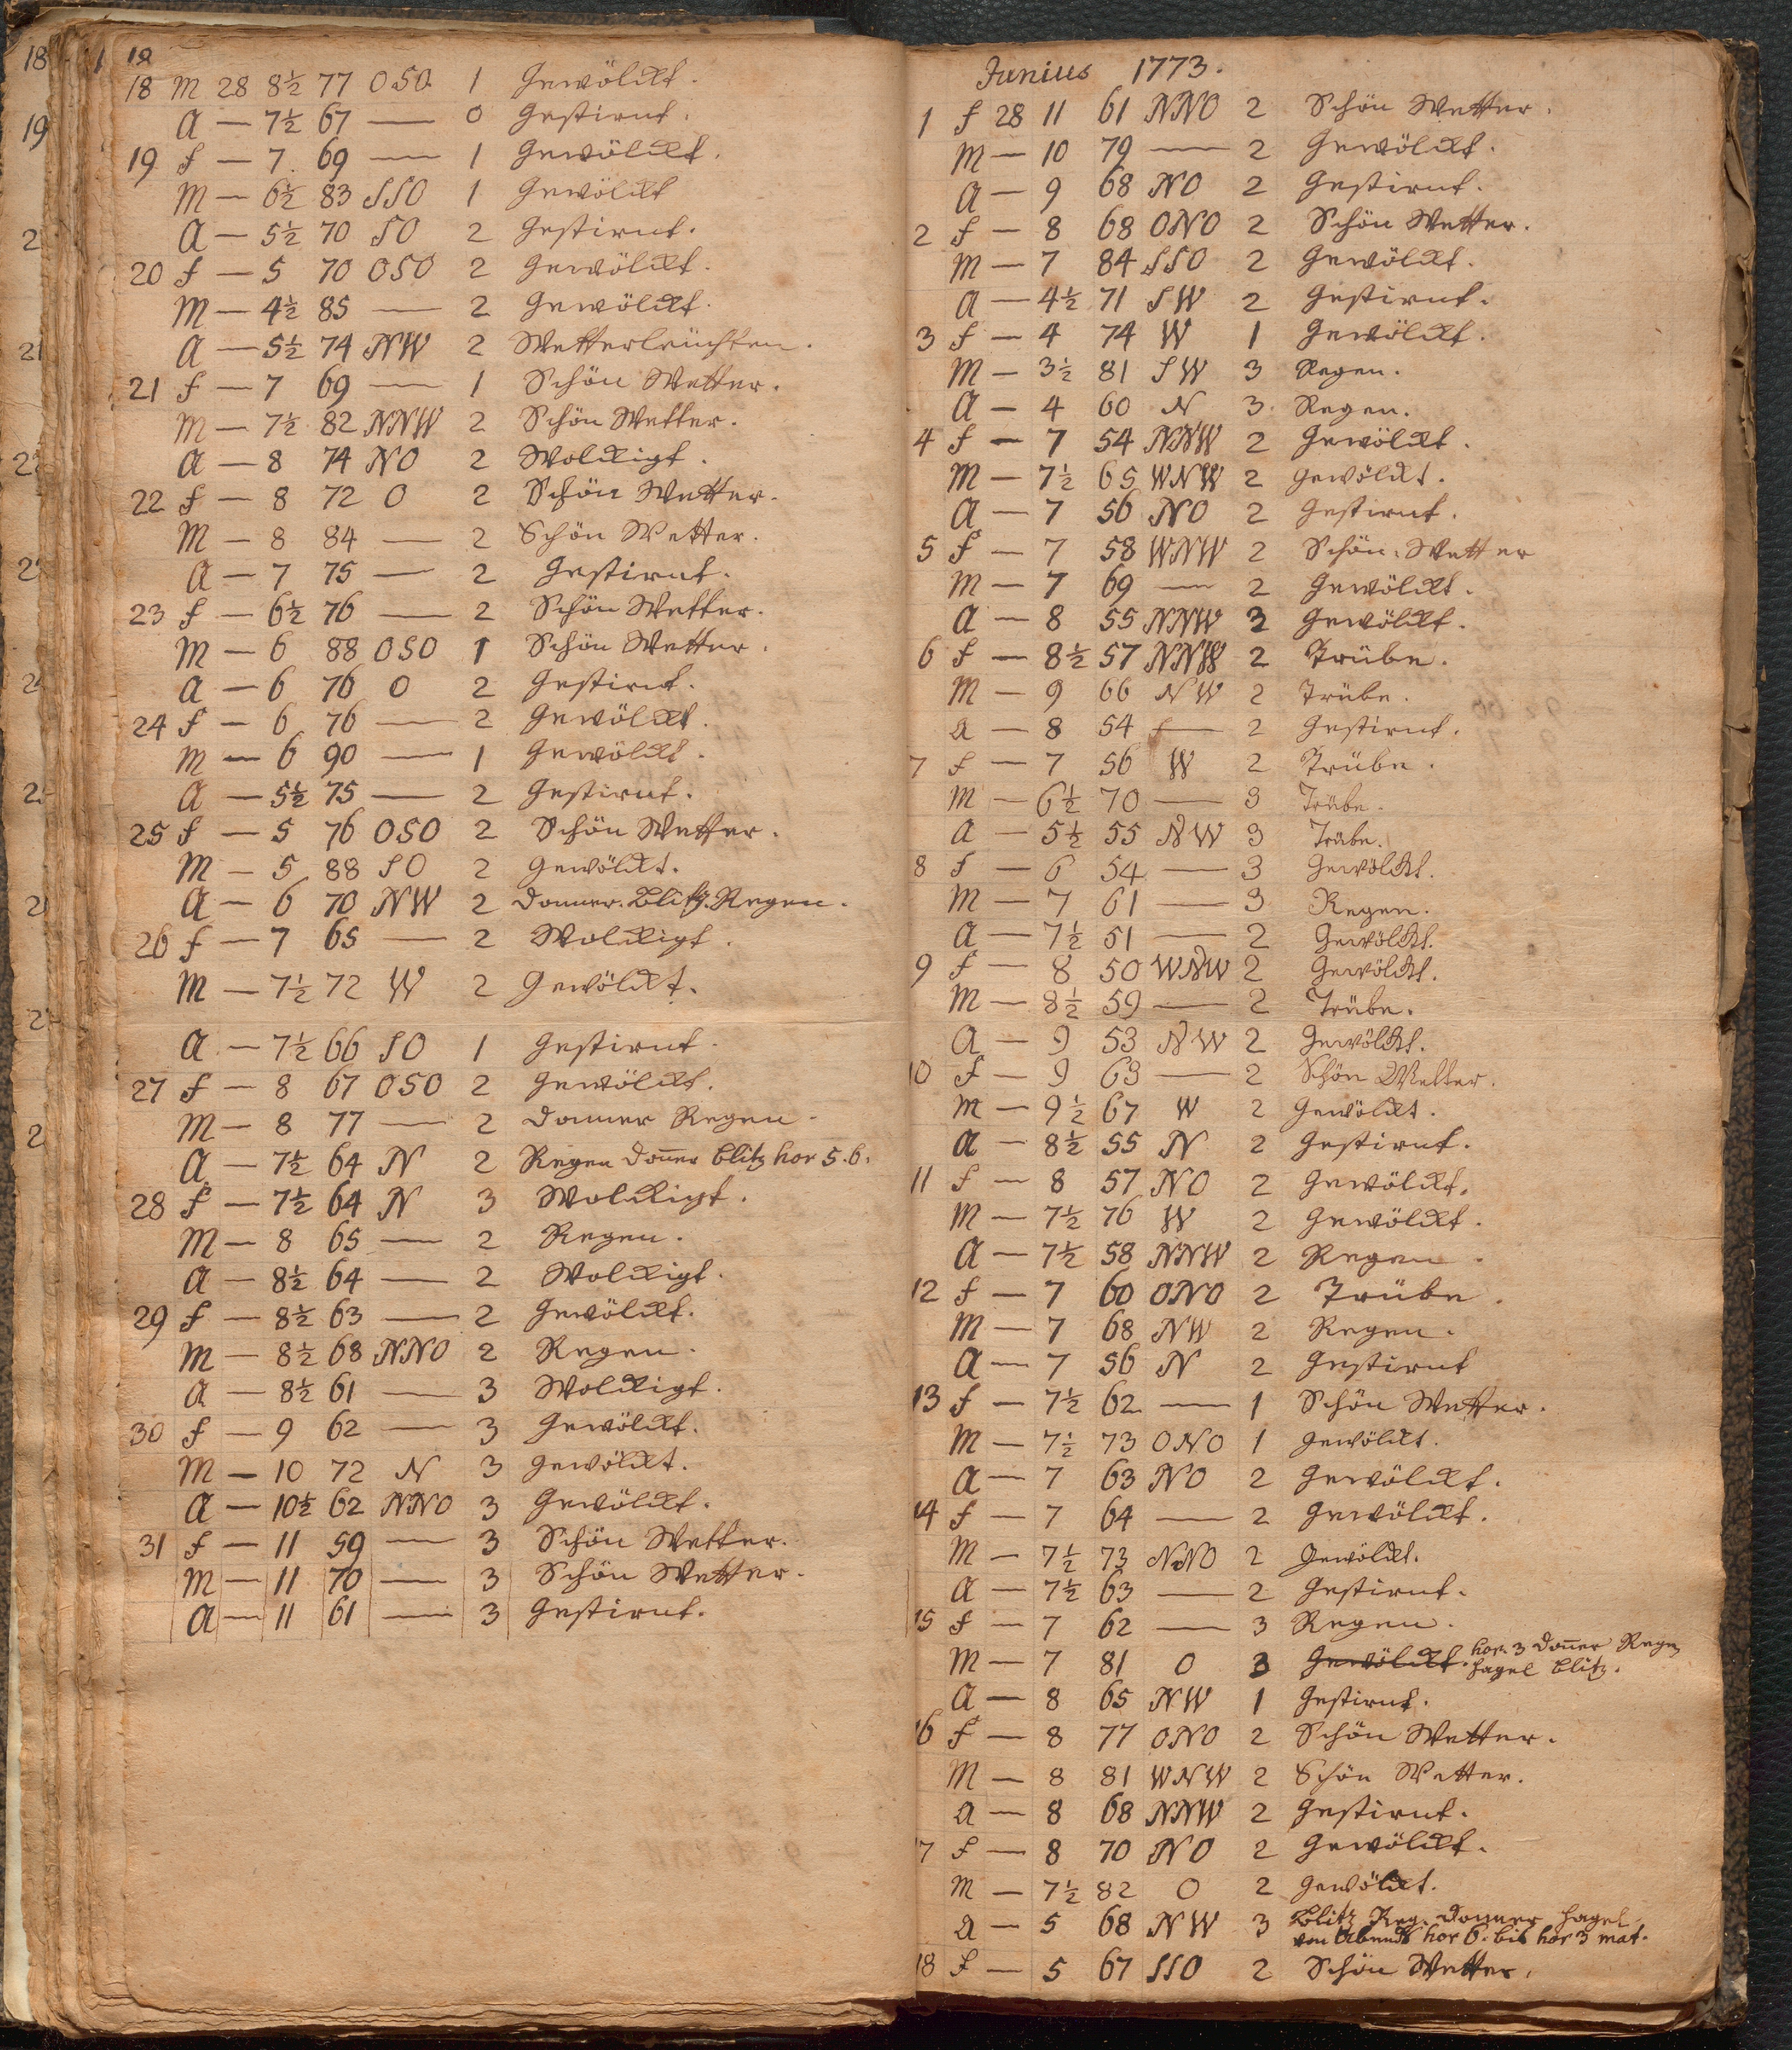 18
18 M 28 8½ 77 OSO 1 Gewölckt.
A — 7½ 67 — 0 Gestirnt.
19 f — 7. 69 — 1 Gewölckt.
M — 6½ 83 SSO 1 Gewölckt
A — 5½ 70 SO 2 Gestirnt.
20 f — 5 70 OSO 2 Gewölckt.
M — 4½ 85 — 2 Gewölckt.
A — 5½ 74 NW 2 Wetterleuchten.
21 f — 7 69 — 1 Schön Wetter.
M — 7½ 82 NNW 2 Schön Wetter.
A — 8 74 NO 2 Wolckigt.
22 f — 8 72 O 2 Schön Wetter.
M — 8 84 — 2 Schön Wetter.
A — 7 75 — 2 Gestirnt.
23 f — 6½ 76 — 2 Schön Wetter.
M — 6 88 OSO 1 Schön Wetter.
A — 6 76 O 2 Gestirnt.
24 f — 6 76 — 2 Gewölckt.
M — 6 90 — 1 Gewölckt.
A — 5½ 75 — 2 Gestirnt.
25 f — 5 76 OSO 2 Schön Wetter.
M — 5 88 SO 2 Gewölckt.
A — 6 70 NW 2 Donner. Blitz. Regen.
26 f — 7 65 — 2 Wolckigt.
M — 7½ 72 W 2 Gewölckt.
A — 7½ 66 SO 1 Gestirnt.
27 f — 8 67 OSO 2 Gewölckt.
M — 8 77 — 2 Donner Regen.
A — 7½ 64 N 2 Regen Don̄er blitz hor 5.6.
28 f — 7½ 64 N 3 Wolckigt.
M — 8 65 — 2 Regen.
A — 8½ 64 — 2 Wolckigt.
29 f — 8½ 63 — 2 Gewölckt.
M — 8½ 68 NNO 2 Regen.
A — 8½ 61 — 3 Wolckigt.
30 f — 9 62 — 3 Gewölckt.
M — 10 72 N 3 Gewölckt.
A — 10½ 62 NNO 3 Gewölckt.
31 f — 11 59 — 3 Schön Wetter.
M — 11 70 — 3 Schön Wetter.
A — 11 61 — 3 Gestirnt.
Junius 1773.
1 f 28 11 61 NNO 2 Schön Wetter.
M — 10 79 — 2 Gewölckt.
A — 9 68 NO 2 Gestirnt.
2 f — 8 68 ONO 2 Schön Wetter.
M — 7 84 SSO 2 Gewölckt.
A — 4½ 71 SW 2 Gestirnt.
3 f — 4 74 W 1 Gewölckt.
M — 3½ 81 SW 3 Regen.
A — 4 60 N 3 Regen.
4 f — 7 54 NNW 2 Gewölckt.
M — 7½ 65 WNW 2 Gewölckt.
A — 7 56 NO 2 Gestirnt.
5 f — 7 58 WNW 2 Schön Wetter
M — 7 69 — 2 Gewölckt.
A — 8 55 NNW 2 Gewölckt.
6 f — 8½ 57 NNW 2 Trübe.
M — 9 66 NW 2 Trübe.
A — 8 54 — 2 Gestirnt.
7 f — 7 56 W 2 Trübe.
M — 6½ 70 — 3 Trübe.
A — 5½ 55 NW 3 Trübe.
8 f — 6 54 — 3 Gewölckt.
M — 7 61 — 3 Regen.
A — 7½ 51 — 2 Gewölckt.
9 f — 8 50 WNW 2 Gewölckt.
M — 8½ 59 — 2 Trübe.
A — 9 53 NW 2 Gewölckt.
10 f — 9 63 — 2 Schön Wetter.
M — 9½ 67 W 2 Gewölckt.
A — 8½ 55 N 2 Gestirnt.
11 f — 8 57 NO 2 Gewölckt.
M — 7½ 76 W 2 Gewölckt.
A — 7½ 58 NNW 2 Regen.
12 f — 7 60 ONO 2 Trübe.
M — 7 68 NW 2 Regen.
A — 7 56 N 2 Gestirnt
13 f — 7½ 62 — 1 Schön Wetter.
M — 7½ 73 ONO 1 Gewölckt.
A — 7 63 NO 2 Gewölckt.
14 f — 7 64 — 2 Gewölckt.
M — 7½ 73 NNO 2 Gewölckt.
A — 7½ 63 — 2 Gestirnt.
15 f — 7 62 — 3 Regen.
M — 7 81 O 3 Gewölckt. hor. 3 Don̄er Regen
Hagel blitz.
A — 8 65 NW 1 Gestirnt.
16 f — 8 77 ONO 2 Schön Wetter.
M — 8 81 WNW 2 Schön Wetter.
A — 8 68 NNW 2 Gestirnt.
17 f — 8 70 NO 2 Gewölckt.
M — 7½ 82 O 2 Gewölckt.
A — 5 68 NW 3 Blitz Reg. Donner Hagel
von Abends hor 6. bis hor 3 mat.
18 f — 5 67 SSO 2 Schön Wetter.